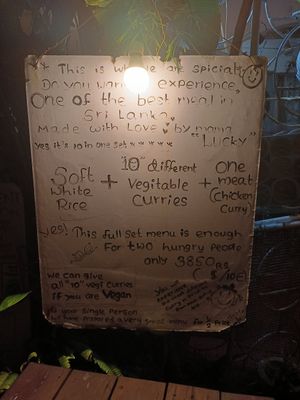 * This is w are spicial
Do you wan experience,
One of the best meal in
Sri Lanka,
Made with Love by mama
yes it's 10 in one set "Lucky"
Soft White Rice + "10" different Vegitable Curries + one meat (Chicken Curry)
yes! This full set menu is enough
For two hungry people
only 3850 Rs
($ 10
we can give
all "10" vegi curries
if you are Vegan
your single Person
have a very menu for 1/2 Price